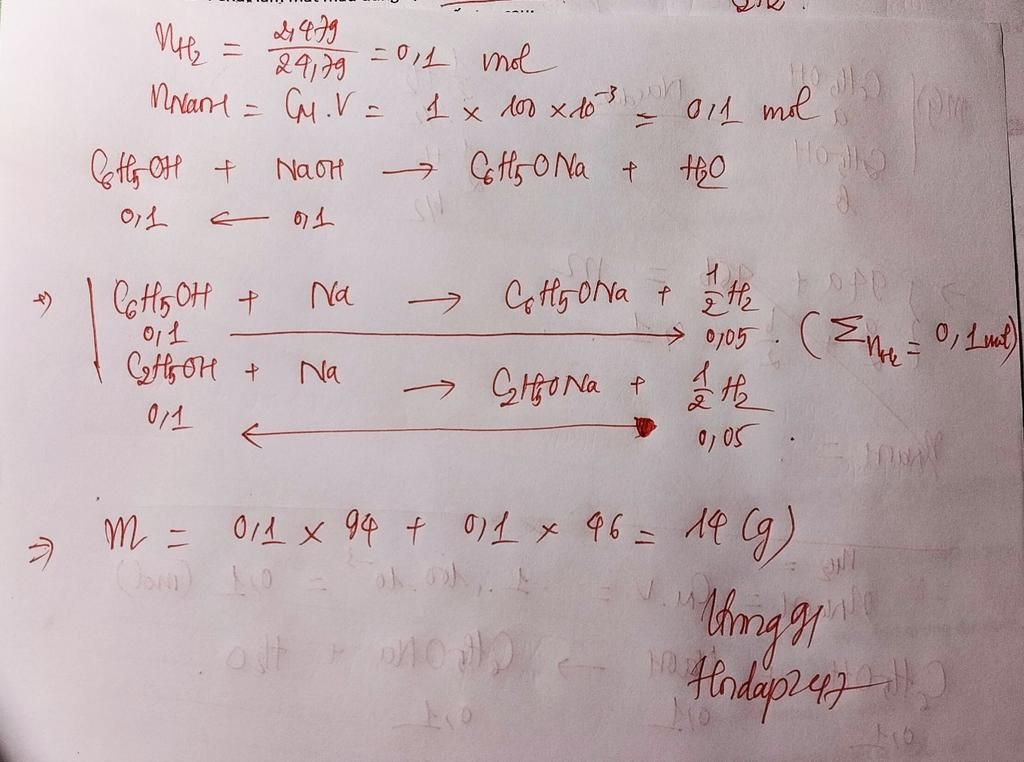 n_H2 = 2,479 / 24,79 = 0,1 mol
n_NaOH = C_M.V = 1 × 100 × 10^-3 = 0,1 mol
C6H5OH + NaOH → C6H5ONa + H2O
0,1 ← 0,1
⇒ C6H5OH + Na → C6H5ONa + 1/2 H2
0,1 → 0,05 . (Σn_H2 = 0,1 mol)
C2H5OH + Na → C2H5ONa + 1/2 H2
0,1 ← 0,05 .
⇒ m = 0,1 × 94 + 0,1 × 46 = 14 (g)
Hndap247